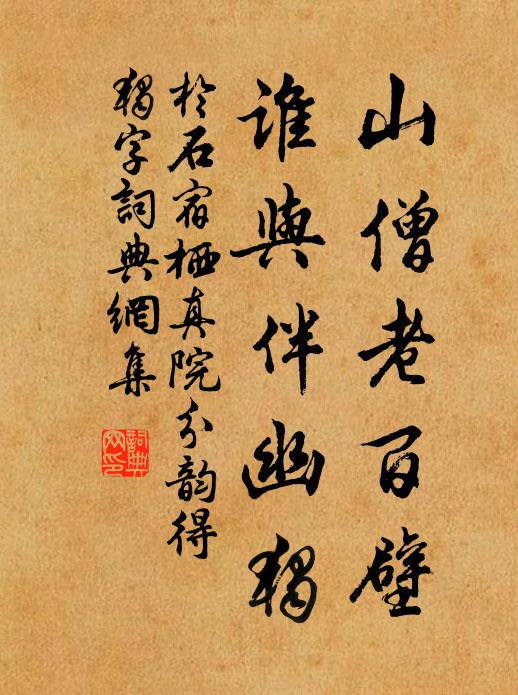 山僧老百壁
誰與伴幽獨
於石宿栖真院分韵得
獨字詞典網集
詞典
网印